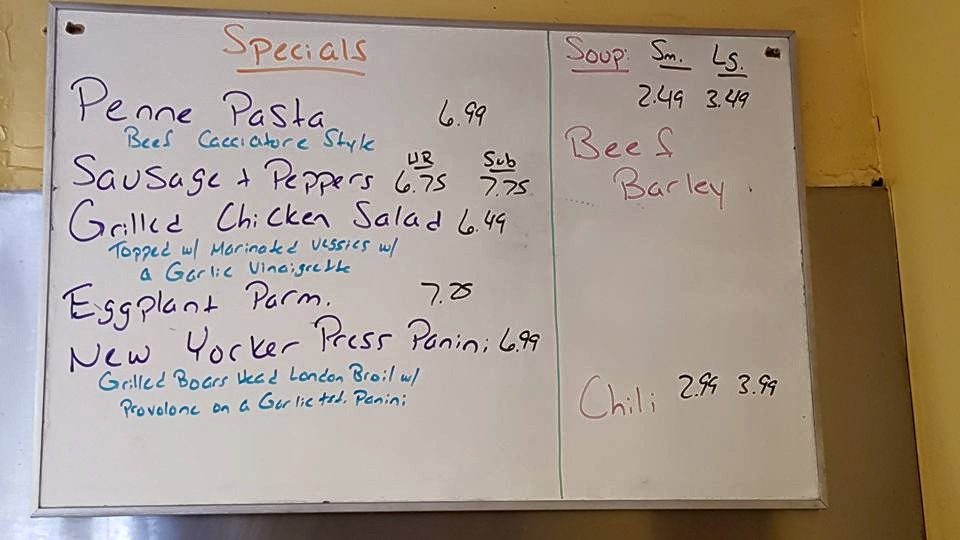 Specials
Penne Pasta 6.99
Beef Cacciatore Style
HR Sub
Sausage + Peppers 6.75 7.75
Grilled Chicken Salad 6.49
Topped w/ Marinated veggies w/
a Garlic Vinaigrette
Eggplant Parm. 7.25
New Yorker Press Panini 6.99
Grilled Boars Head London Broil w/
Provolone on a Garlic tsd. Panini
Soup: Sm. Lg.
2.49 3.49
Beef
Barley
Chili 2.99 3.99